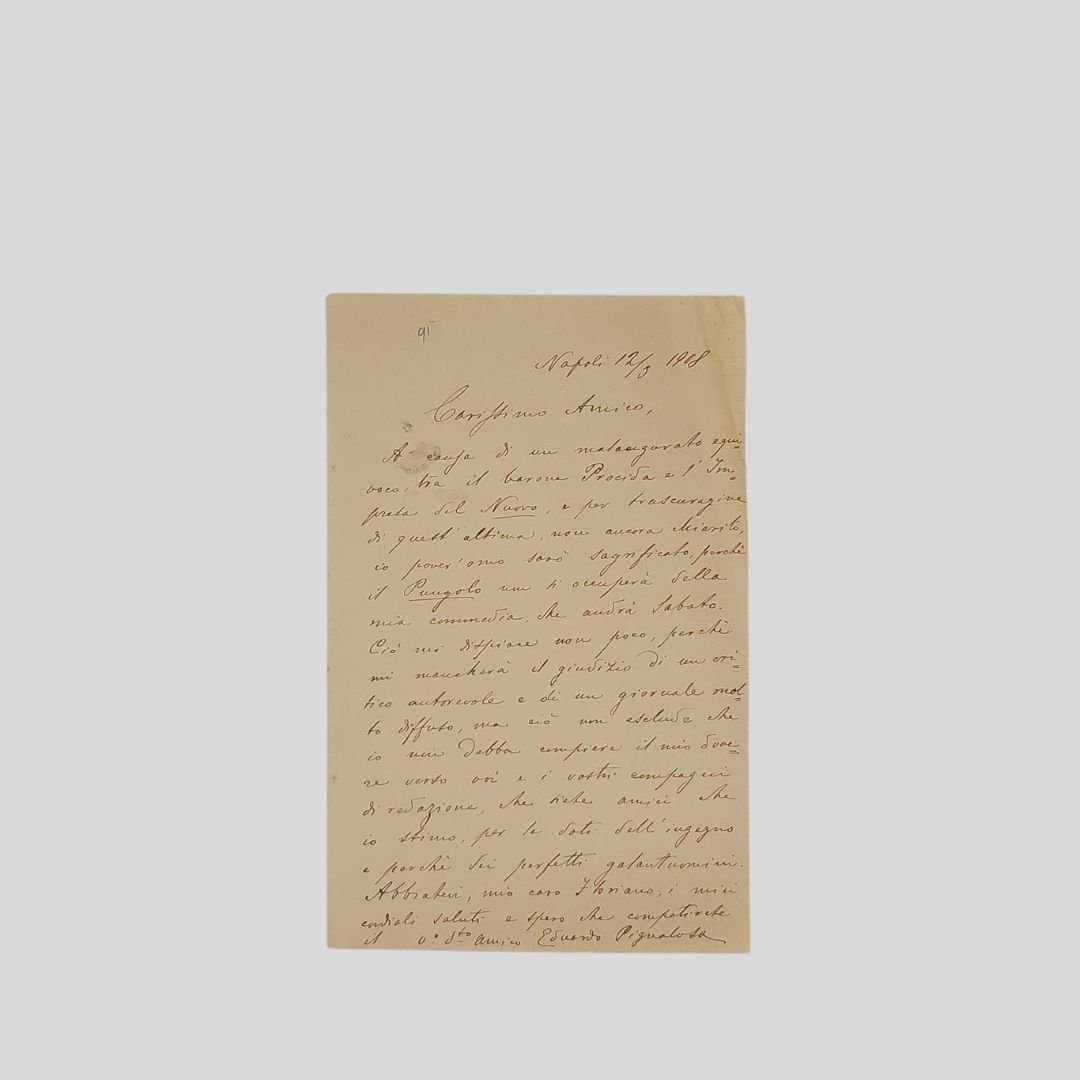 91
Napoli 12/3 1908
Carissimo Amico,
A causa di un malaugurato equi=
voco, tra il barone Procida e l'Im=
presa del Nuovo, e per trascuragine
di quest'ultima, non ancora chiarito,
io pover'omo sarò sagrificato, perchè
il Pungolo non si occuperà della
mia commedia, che andrà Sabato.
Ciò mi dispiace non poco, perchè
mi mancherà il giudizio di un cri=
tico autorevole e di un giornale mol=
to diffuso, ma ciò non esclude che
io non debba compiere il mio dove=
re verso voi e i vostri compagni
di redazione, che siete amici che
io stimo, per le doti dell'ingegno
e perchè dei perfetti galantuomini.
Abbiatevi, mio caro Floriano, i miei
cordiali saluti e spero che compatirete
il v.o amico Eduardo Pignalosa